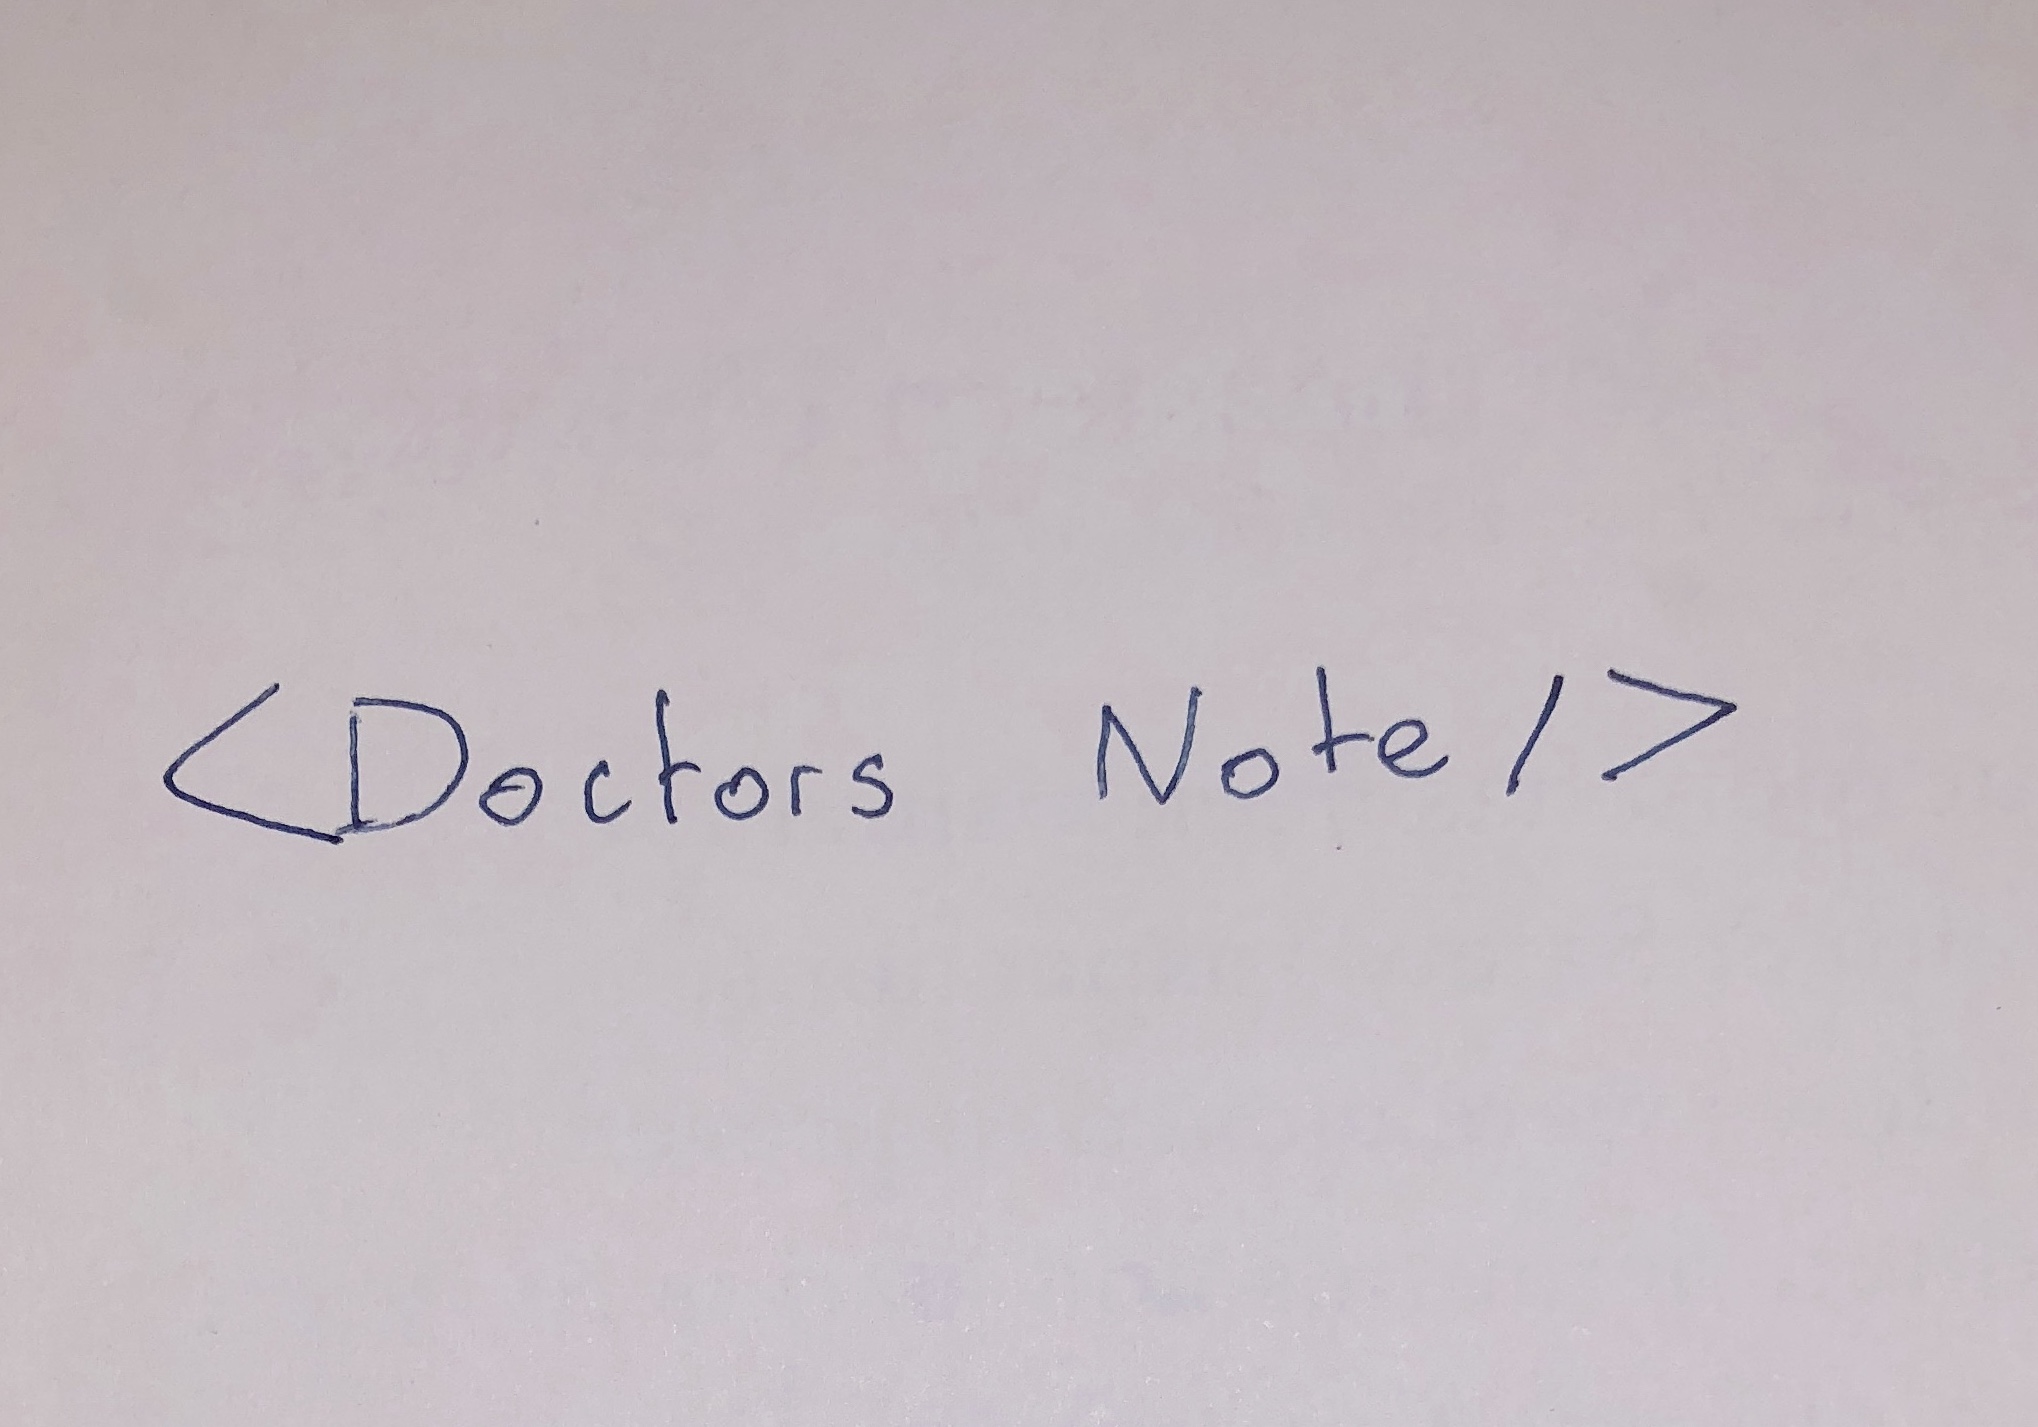 <Doctors Note/>